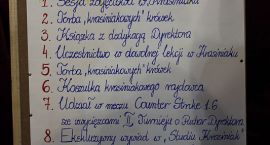 1. Sesja zdjęciowa w „Krasiniaku"
2. Torba „krasiniakowych" krówek
3. Książka z dedykacją Dyrektora
4. Uczestnictwo w dowolnej lekcji w Krasiniaku
5. Torba „krasiniakowych" krówek
6. Koszulka krasiniakowego rajdowca
7. Udział w meczu Counter Strike 1.6
ze zwycięzcami II Turnieju o Puchar Dyrektora
8. Ekskluzywny wywiad w „Studiu Kreżniak"